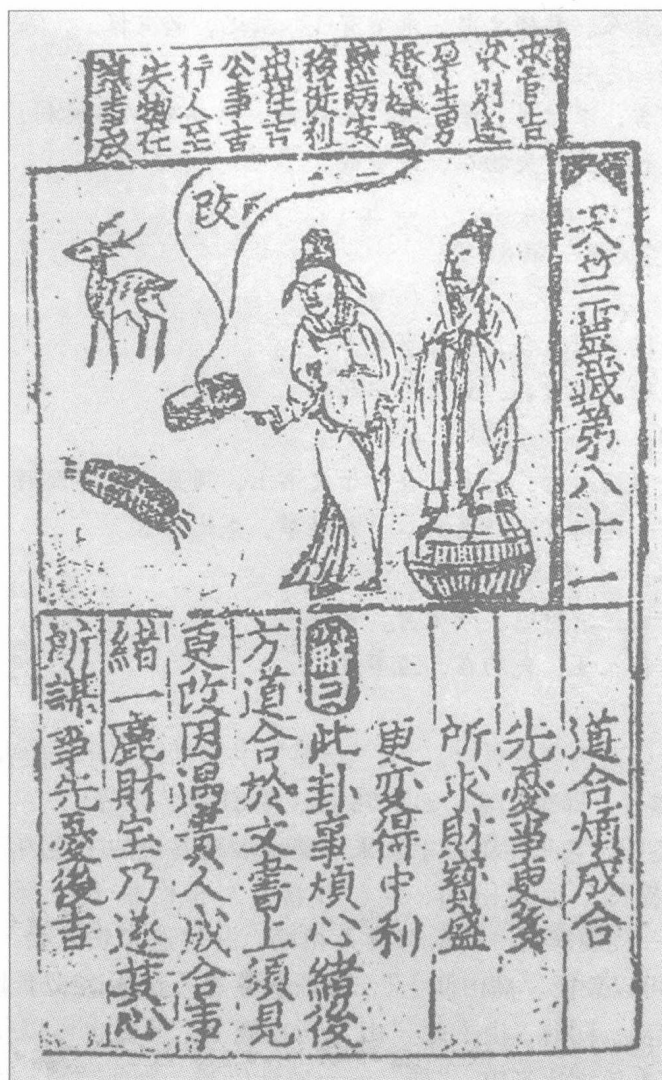 求官吉
求財遂
孕生男
婚姻
安
移徙利
出往吉
公事吉
行人至
失物在
謀事成
天竺霊籤第八十一
改
道合煩成合
先憂事更多
所求財寳盛
更变得中利
解曰此卦事煩心緒後
方道合於文書上須見
更改因遇貴人成合事
緒一鹿財宝乃遂其心
所謀事先憂後吉